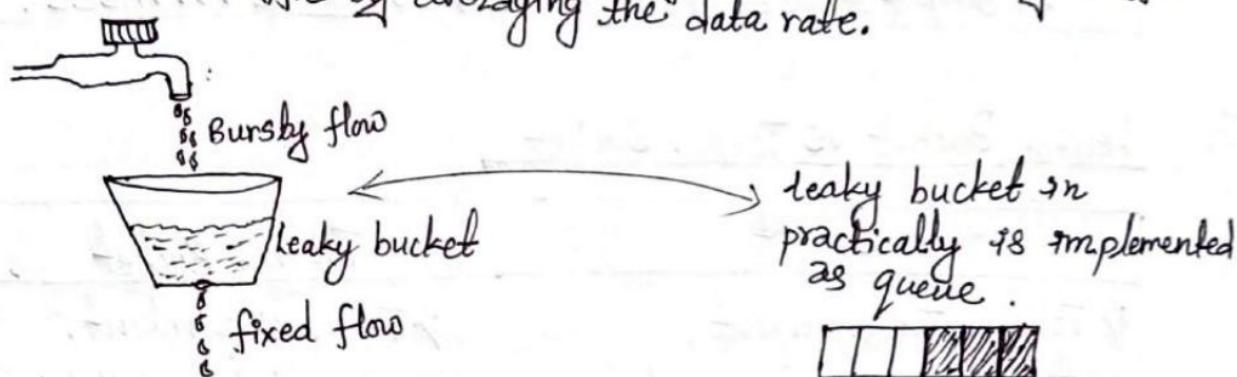 averaging the data rate.
Bursty flow
leaky bucket
fixed flow
leaky bucket in
practically is implemented
as queue.